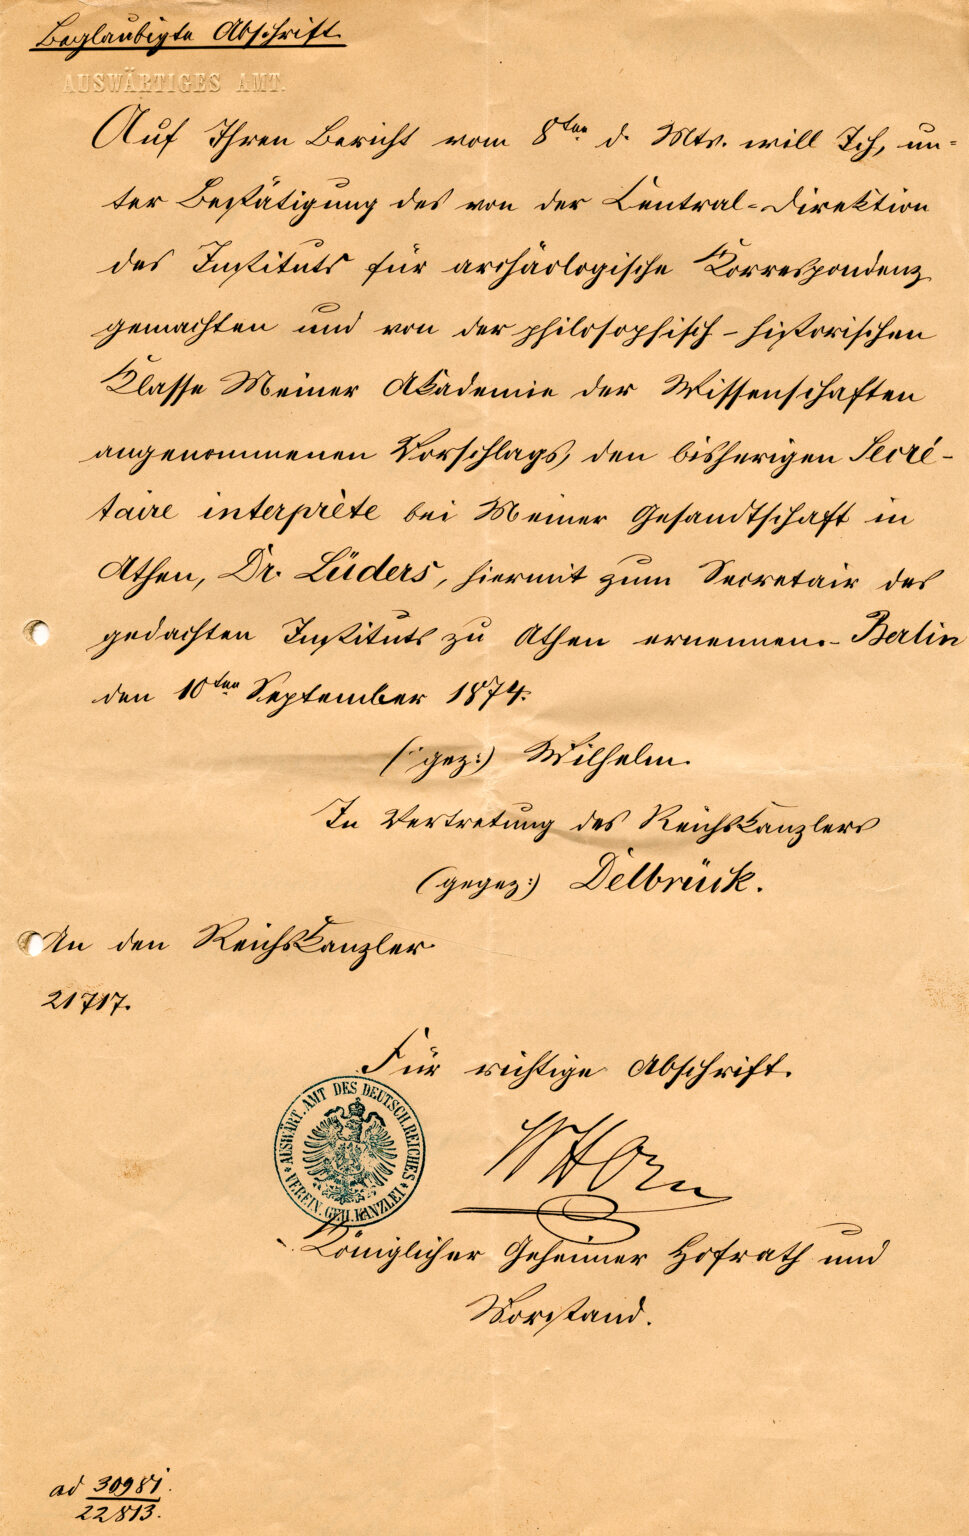 Beglaubigte Abschrift.
AUSWÄRTIGES AMT.
Auf Ihren Bericht vom 8ten d. Mts. will Ich, un-
ter Bestätigung des von der Central-Direktion
des Instituts für archäologische Korrespondenz
gemachten und von der philosophisch-historischen
Klasse Meiner Akademie der Wissenschaften
angenommenen Vorschlags, den bisherigen Secré-
taire interprète bei Meiner Gesandtschaft in
Athen, Dr. Lüders, hiermit zum Secretair des
gedachten Instituts zu Athen ernennen.- Berlin
den 10ten September 1874.
(gez:) Wilhelm.
In Vertretung des Reichskanzlers
(gegez:) Delbrück.
An den Reichskanzler.
21717.
Für richtige Abschrift.
AUSWÄRT. AMT DES DEUTSCH. REICHES
VEREIN. GEH. KANZLEI
WHorn
Königlicher Geheimer Hofrath und
Vorstand.
ad 30981.
22813.